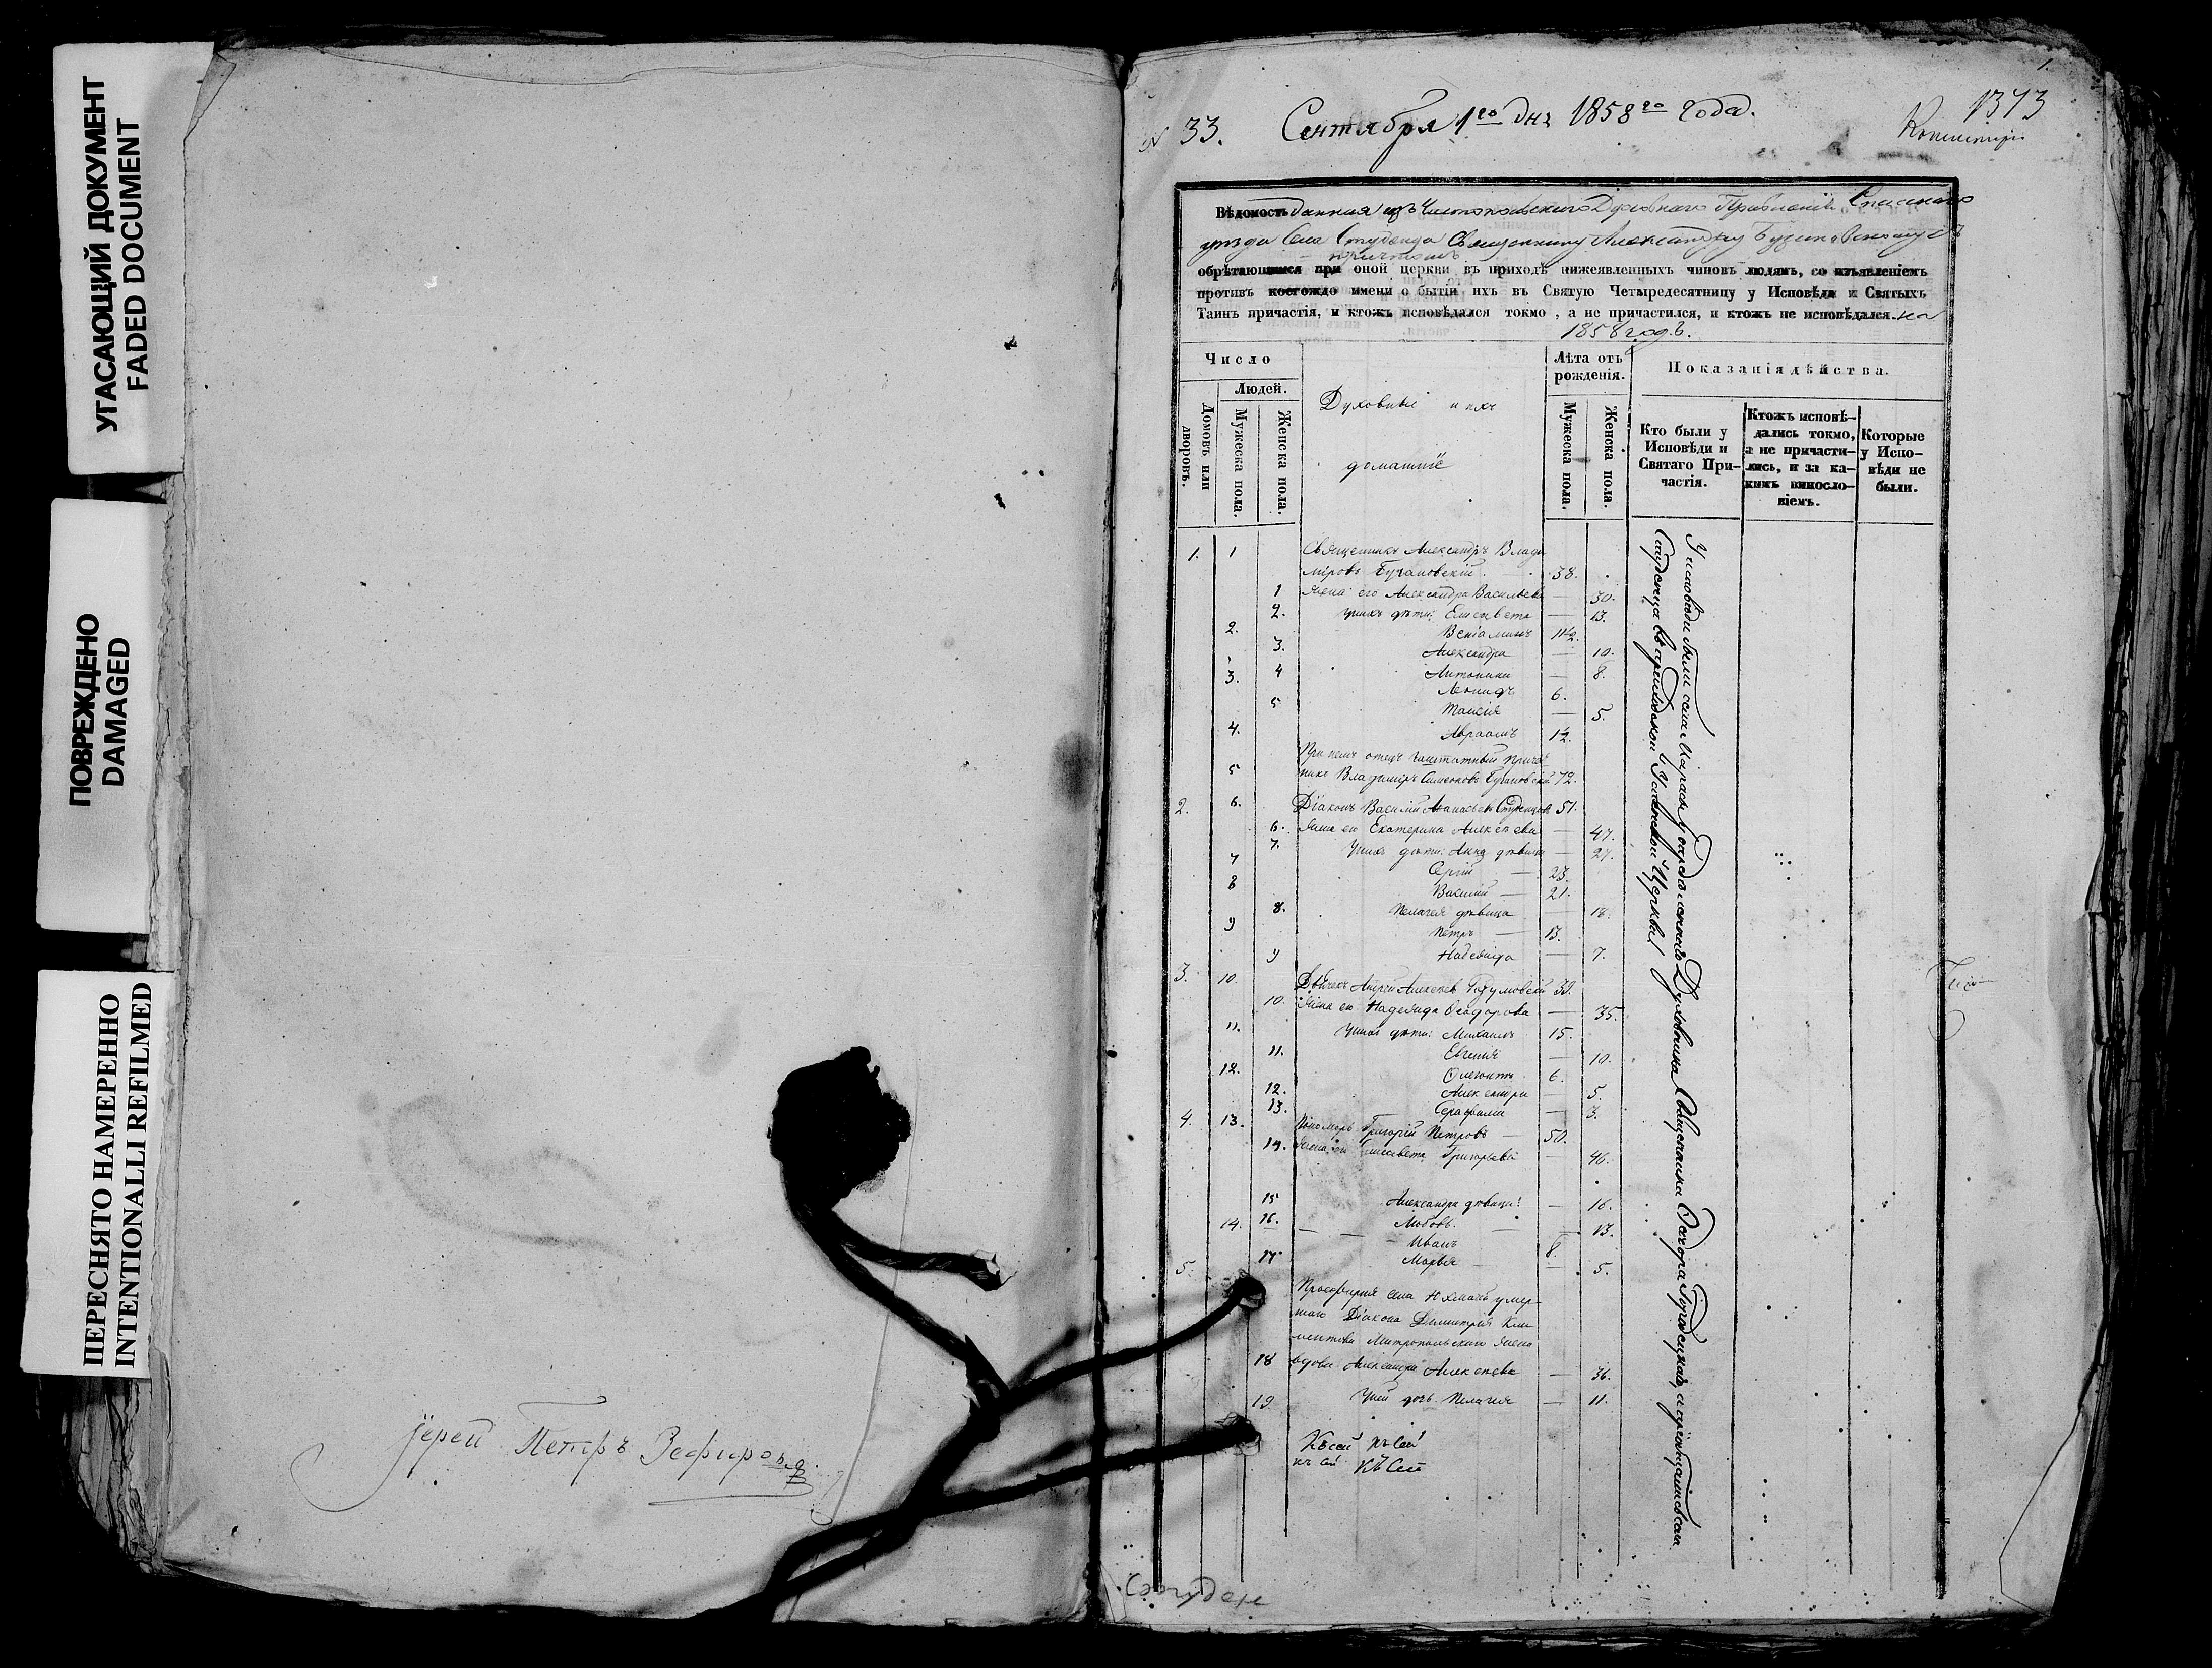 УГАСАЮЩИЙ ДОКУМЕНТ
FADED DOCUMENT
ПОВРЕЖДЕНО
DAMAGED
ПЕРЕСНЯТО НАМЕРЕННО
INTENTIONALLI REFILMED
Іерей Петръ Зефировъ
1.
1373
№ 33. Сентября 1го дня 1858го года.
Вѣдомость данная изъ Чистопольскаго Духовнаго Правленія Спасскаго
уѣзда Села Студенца Священнику Александру
причтомъ
обрѣтающимся при оной церкви въ приходѣ нижеявленныхъ чиновъ людямъ, со изъявленіемъ
противъ коегождо имени о бытіи ихъ въ Святую Четыредесятницу у Исповѣди и Святыхъ
Таинъ причастія, и ктожъ исповѣдался токмо, а не причастился, и ктожъ не исповѣдался. на
1858 годъ.
Число
Людей.
Домовъ или дворовъ.
Мужеска пола.
Женска пола.
Духовные и ихъ
домашніе
Лѣта отъ рожденія.
Мужеска пола.
Женска пола.
Показанія дѣйства.
Кто были у Исповѣди и Святаго Причастія.
Ктожъ исповѣ-
дались токмо,
а не причасти-
лись, и за ка-
кимъ винословіемъ.
Которые у Испо-
вѣди не были.
1. 1 Священникъ Александръ Влади
міровъ 38.
1 Жена его Александра Васильева — 30.
2. У нихъ дѣти: Елисавета — 13.
2. Веніаминъ 11½.
3. Александра — 10.
4 Антонина — 8.
3. Леонидъ 6.
5 Таисія — 5.
4. Авраамъ 1½.
При немъ отецъ заштатный
5 Владиміръ Симеоновъ 72.
2. 6. Діаконъ Василій Аѳанасьевъ Студенцовъ 51.
6. Жена его Екатерина Алексѣева — 47.
7. У нихъ дѣти: Анна дѣвица — 27.
7 Сергій — 23.
8 Василій — 21.
8. Пелагея дѣвица — 18.
9 Петръ — 13.
9 Надежда — 7.
3. 10. Дьячекъ Андрей Алексѣевъ 39.
10. Жена его Надежда Ѳеодорова — 35.
11. У нихъ дѣти: Михаилъ 15.
11. Евгенія — 10.
12. 6.
12. Александра — 5.
13. Серафима — 3.
4. 13. Пономарь Григорій Петровъ — 50.
14. Жена его Елисавета Григорьева — 46.
15 Александра дѣвица — 16.
16. Любовь. — 13.
14. Иванъ 8.
17 Марья — 5.
5.
Просфирня села умер-
шаго Діакона Димитрія Кли
ментова Митропольскаго жена
18 вдова Александра Алексѣева — 36.
19 У ней дочь Пелагея — 11.
Къ сей къ сей
къ сей Къ Сей
У исповѣди были села у опредѣленнаго Духовника Священника Ѳеодора
Студенца въ Церкви
Студенe